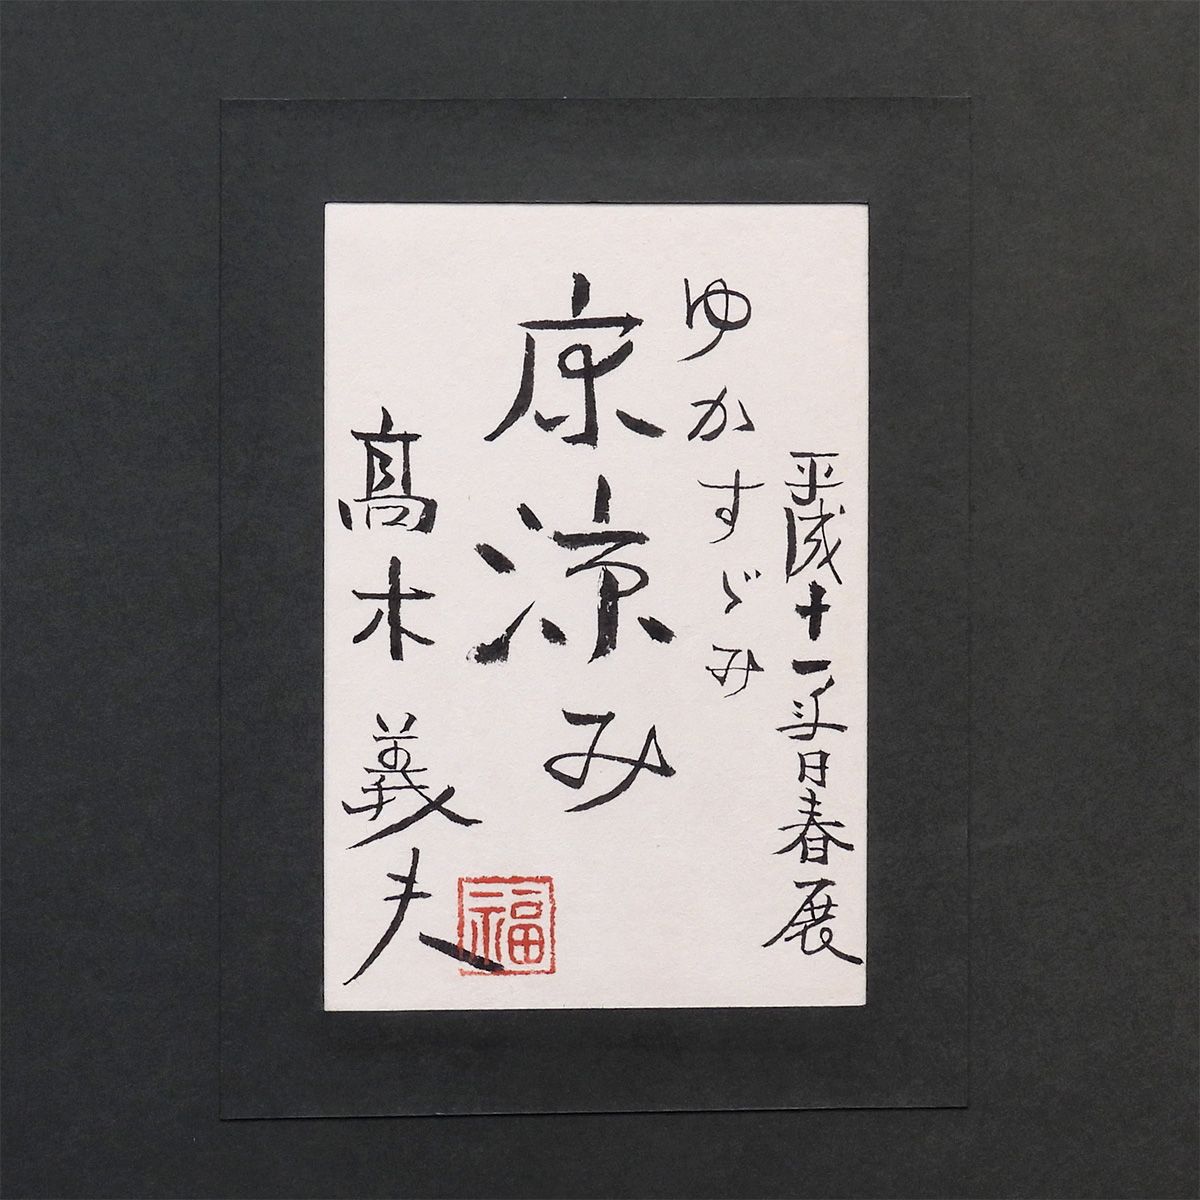 平成十一年日春展
ゆかすゞみ
床涼み
髙木義夫
福